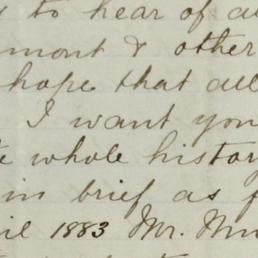 to hear of
mont & other
hope that all
I want you
whole history
in brief as
1883 Mr.